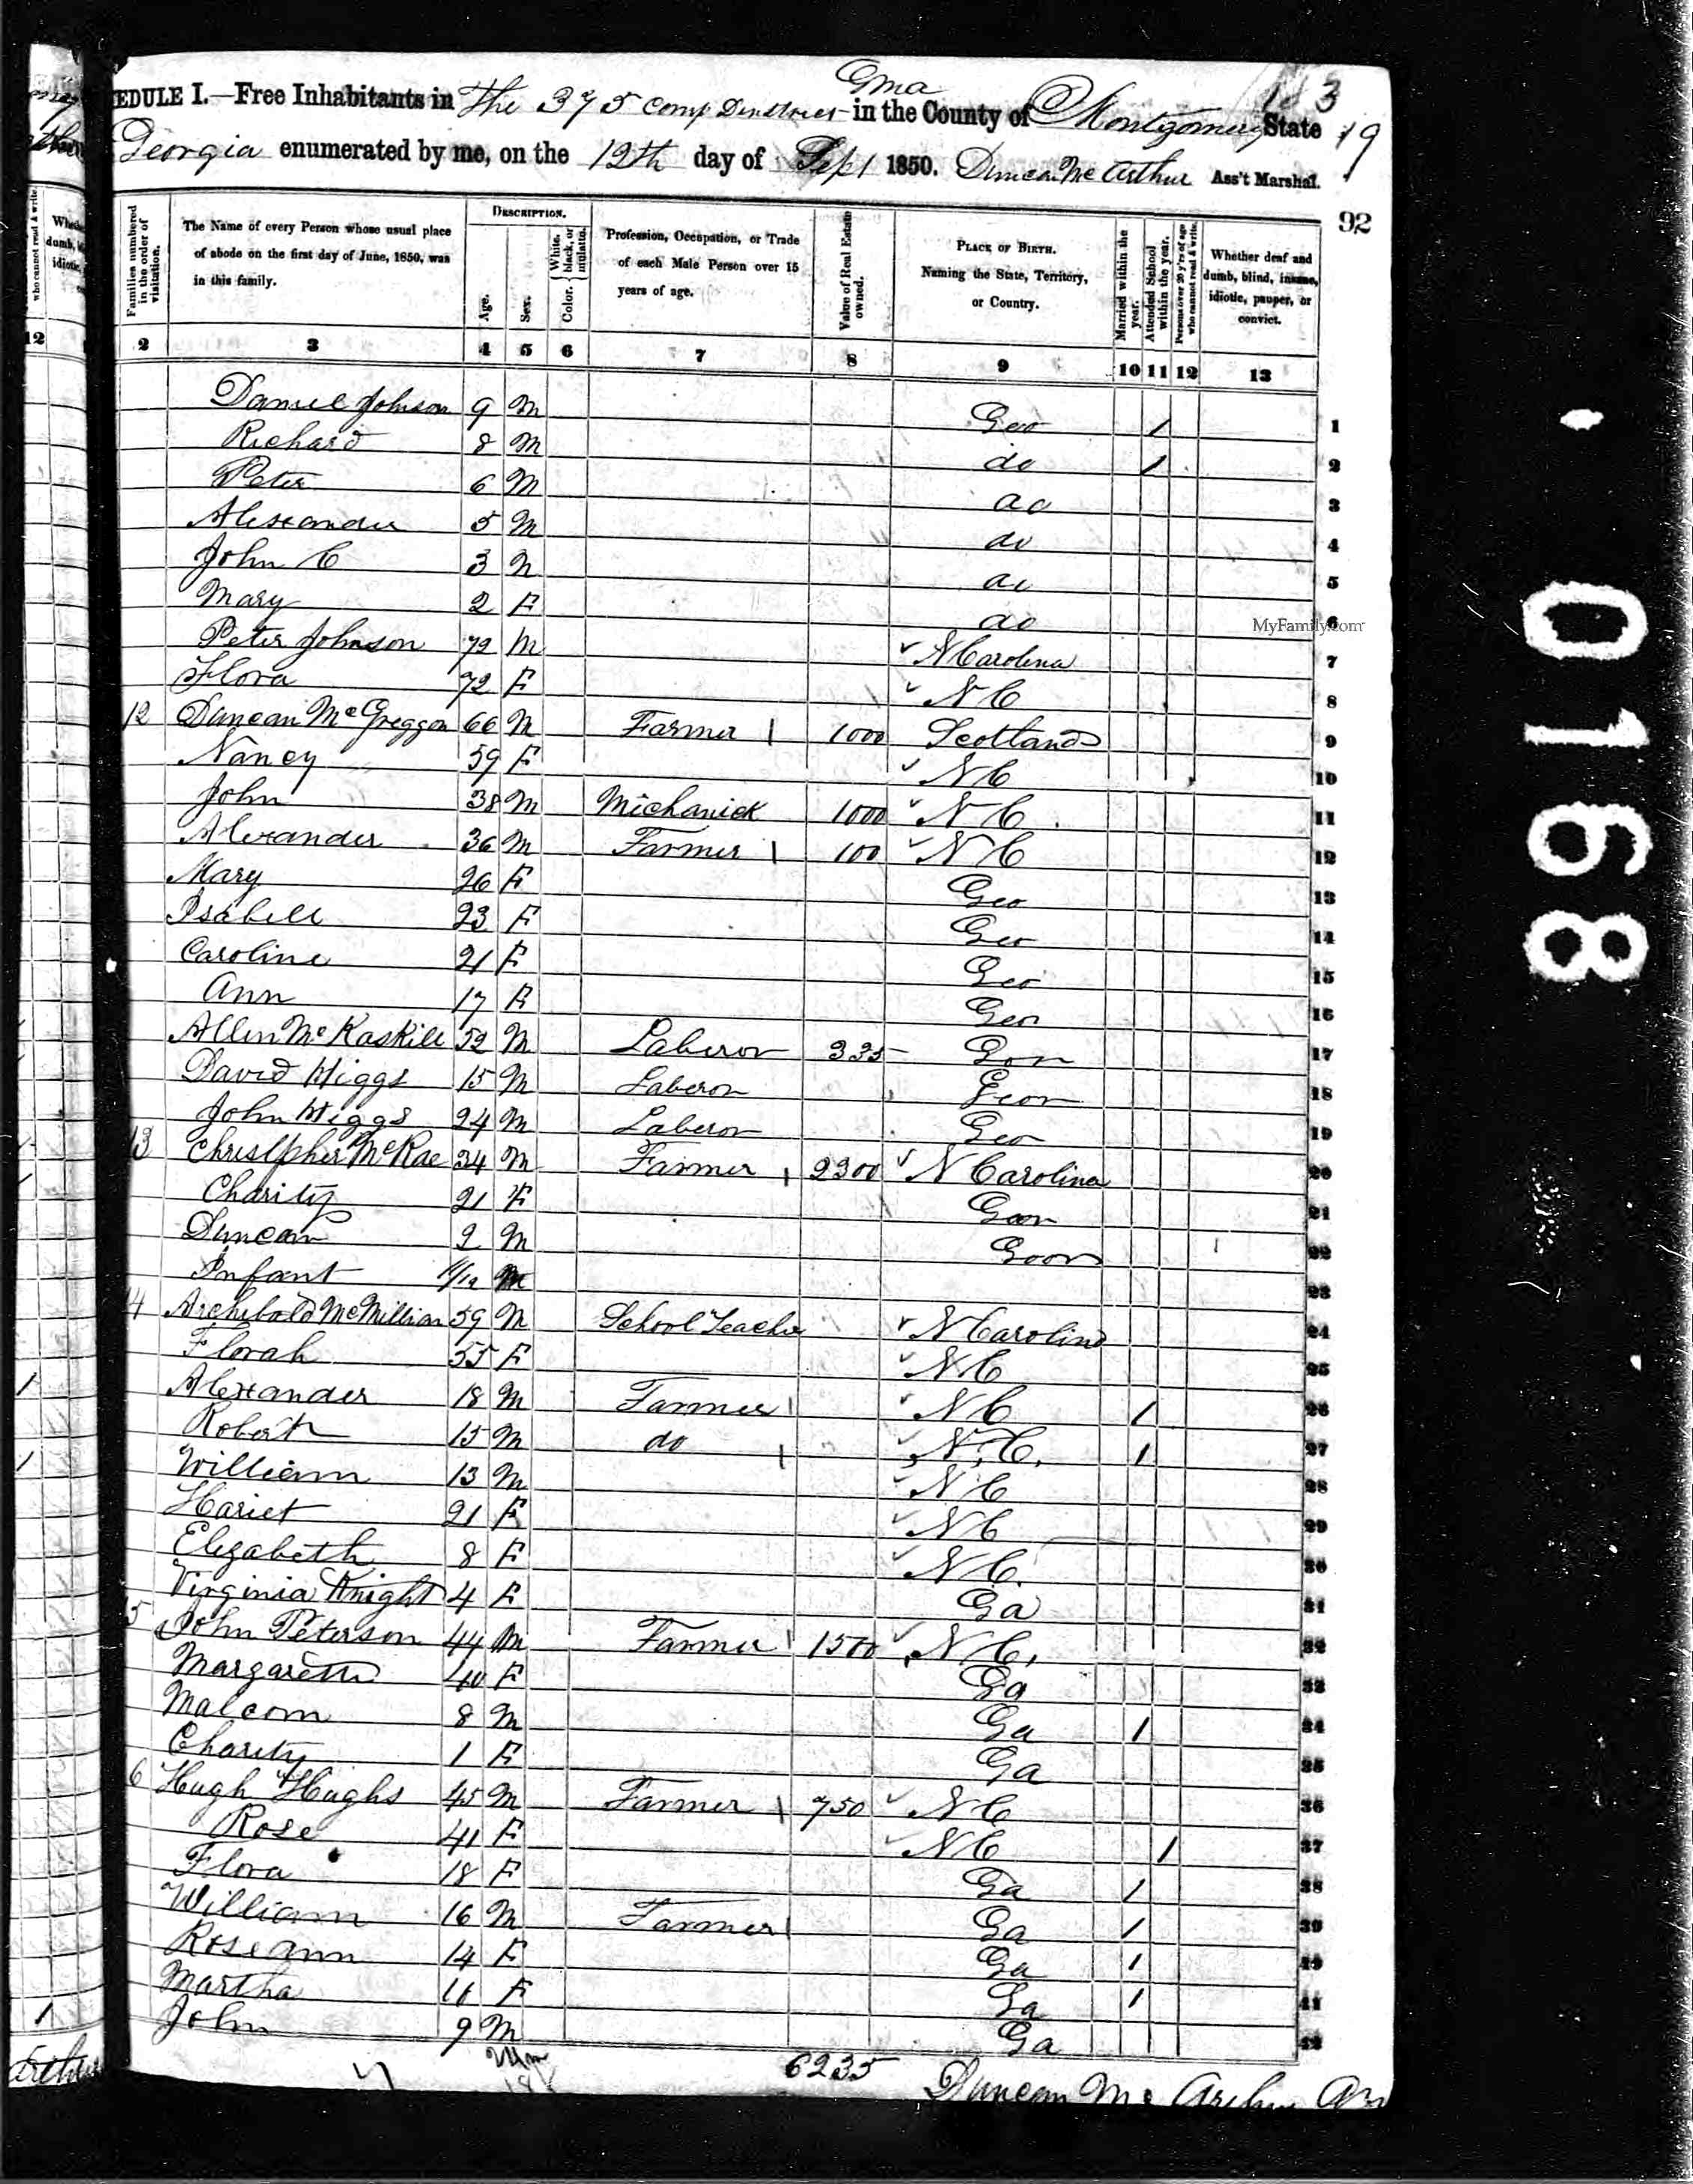 Gma
183
EDULE I.—Free Inhabitants in The 375 Comp District in the County of Montgomery State 19
Georgia enumerated by me, on the 12th day of Sept 1850. Duncan McArthur Ass't Marshal.
92
DESCRIPTION.
Families numbered in the order of visitation.
The Name of every Person whose usual place of abode on the first day of June, 1850, was in this family.
Age.
Sex.
Color. { White, black, or mulatto.
Profession, Occupation, or Trade of each Male Person over 15 years of age.
Value of Real Estate owned.
PLACE OF BIRTH. Naming the State, Territory, or Country.
Married within the year.
Attended School within the year.
Persons over 20 y'rs of age who cannot read & write.
Whether deaf and dumb, blind, insane, idiotic, pauper, or convict.
12 2 3 4 5 6 7 8 9 10 11 12 13
Daniel Johnson 9 M Geo 1 1
Richard 8 M do 1 2
Peter 6 M do 3
Alexander 5 M do 4
John C 3 M do 5
Mary 2 F do 6
MyFamily.com
Peter Johnson 72 M N Carolina 7
Flora 72 F N C 8
12 Duncan McGreggor 66 M Farmer 1000 Scotland 9
Nancy 59 F N C 10
John 38 M Michanick 1000 N C 11
Alexander 36 M Farmer 100 N C 12
Mary 26 F Geo 13
Isabell 23 F Geo 14
Caroline 21 F Geo 15
Ann 17 F Geo 16
Allen McKaskill 52 M Laberor 335 Geor 17
David Higgs 15 M Laberor Geor 18
John Higgs 24 M Laberor Geo 19
13 Christpher McRae 34 M Farmer 2300 N Carolina 20
Charity 21 F Geor 21
Duncan 2 M Geor 22
Infant M 23
14 Archibald McMillian 59 M School Teacher N Carolina 24
Florah 55 F N C 25
Alexander 18 M Farmer N C 1 26
Robert 15 M do N. C. 1 27
William 13 M N C 28
Hariet 21 F N C 29
Elizabeth 8 F N C. 30
Virginia Knight 4 F Ga 31
5 John Peterson 44 M Farmer 1500 N C, 32
Margarett 40 F Ga 33
Malcom 8 M Ga 1 34
Charity 1 F Ga 35
6 Hugh Hughs 45 M Farmer 750 N C 36
Rose 41 F N C 1 37
Flora 18 F Ga 1 38
William 16 M Farmer Ga 1 39
Roseann 14 F Ga 1 40
Martha 11 F Ga 1 41
John 9 M Ga 42
6235
Duncan McArthur
0168